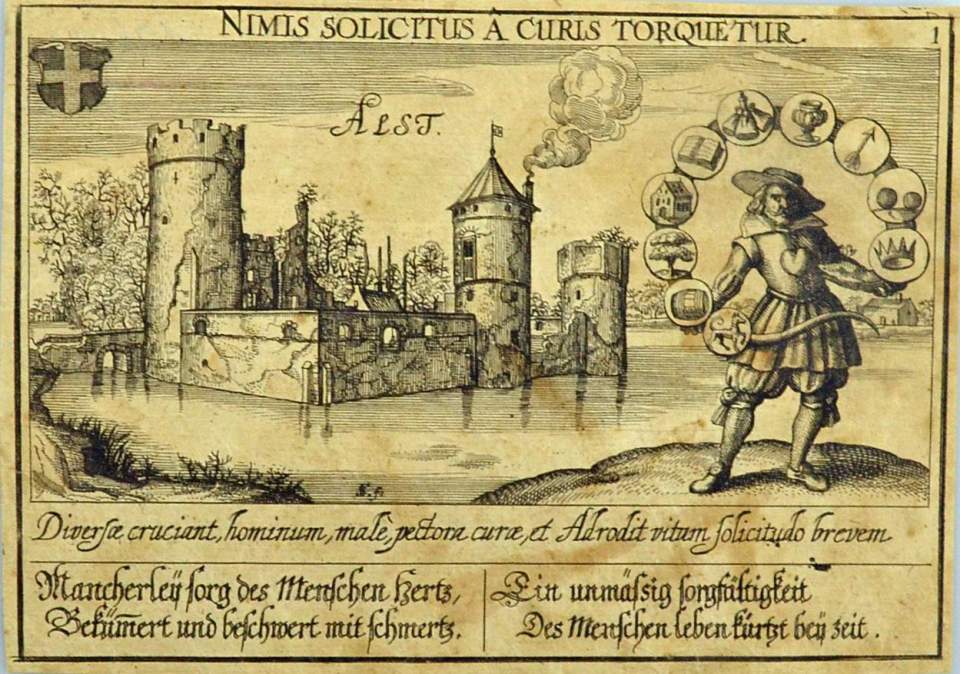 NIMIS SOLICITUS À CURIS TORQUETUR.
1
ALST.
Diversæ cruciant, hominum, malè, pectora curæ, et Adrodit vitam solicitudo brevem
Mancherleÿ sorg des Menschen Hertz,
Bekūm̄ert und beschwert mit schmertz.
Ein unmässig sorgfältigkeit
Des Menschen leben kürtzt beÿ zeit.